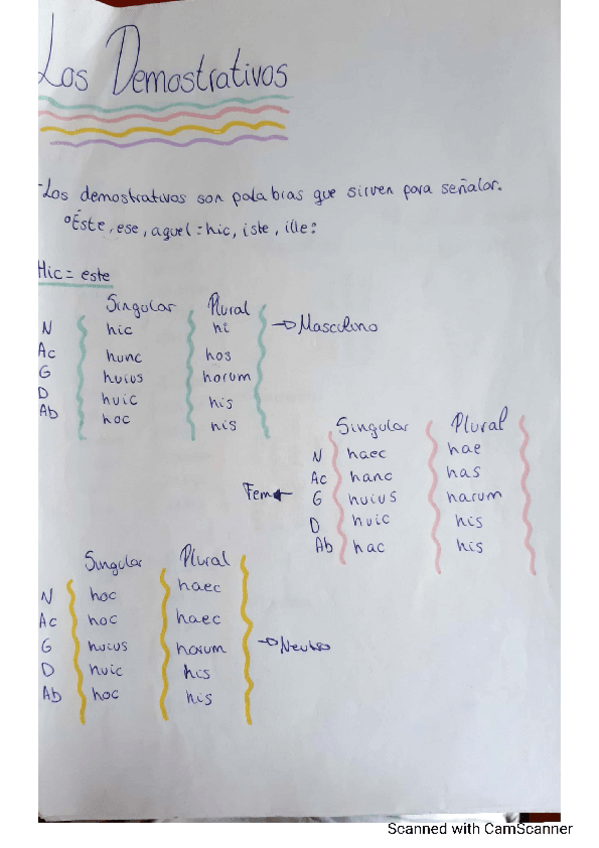 Los Demostrativos
-Los demostrativos son palabras que sirven para señalar.
ºÉste, ese, aquel : hic, iste, ille:
Hic = este
Singular Plural
N hic hi → Masculino
Ac hunc hos
G huius horum
D huic his
Ab hoc his
Singular Plural
N haec hae
Ac hanc has
Fem ← G huius harum
D huic his
Ab hac his
Singular Plural
N hoc haec
Ac hoc haec
G huius horum → Neutro
D huic his
Ab hoc his
Scanned with CamScanner